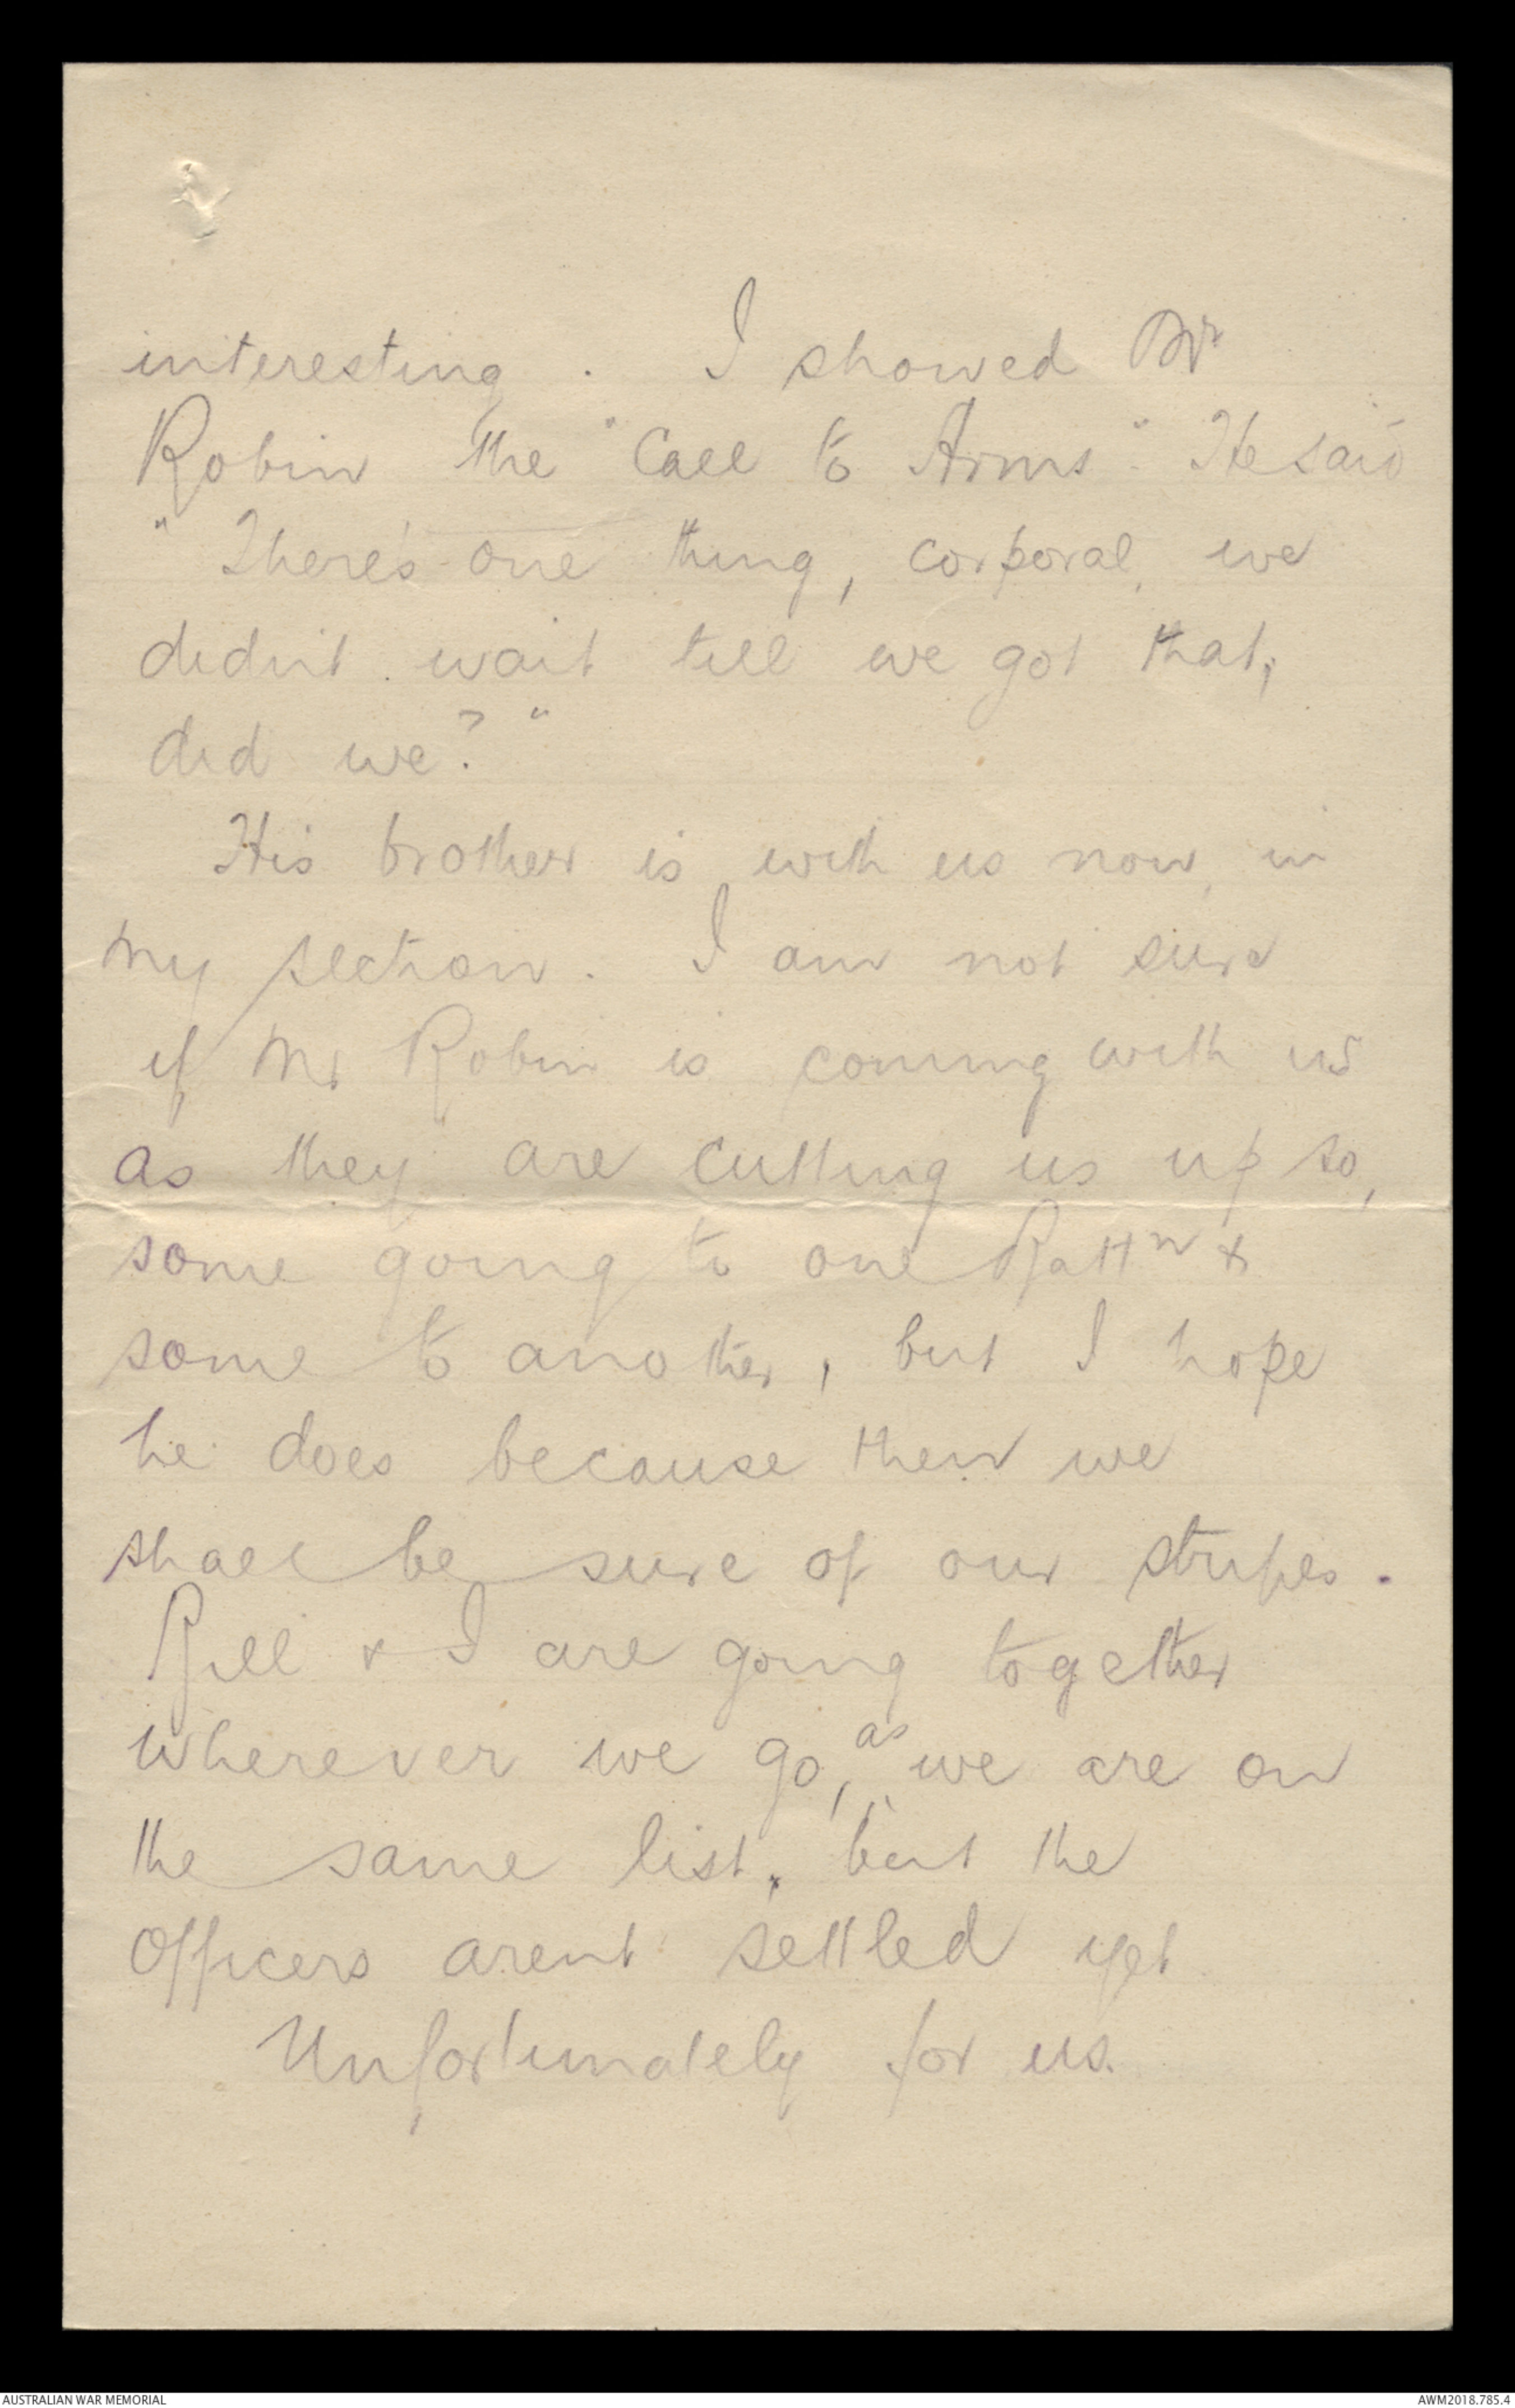 interesting. I showed Mr
Robin the "Call to Arms". He said
"There's one thing, corporal, we
didn't wait till we got that,
did we?"
His brother is with us now, in
my section. I am not sure
if Mr Robin is coming with us
as they are cutting us up so,
some going to one Battn &
some to another, but I hope
he does because then we
shall be sure of our stripes.
Bill & I are going together
wherever we go, as we are on
the same list, but the
Officers arent settled yet
Unfortunately for us.
AUSTRALIAN WAR MEMORIAL
AWM2018.785.4